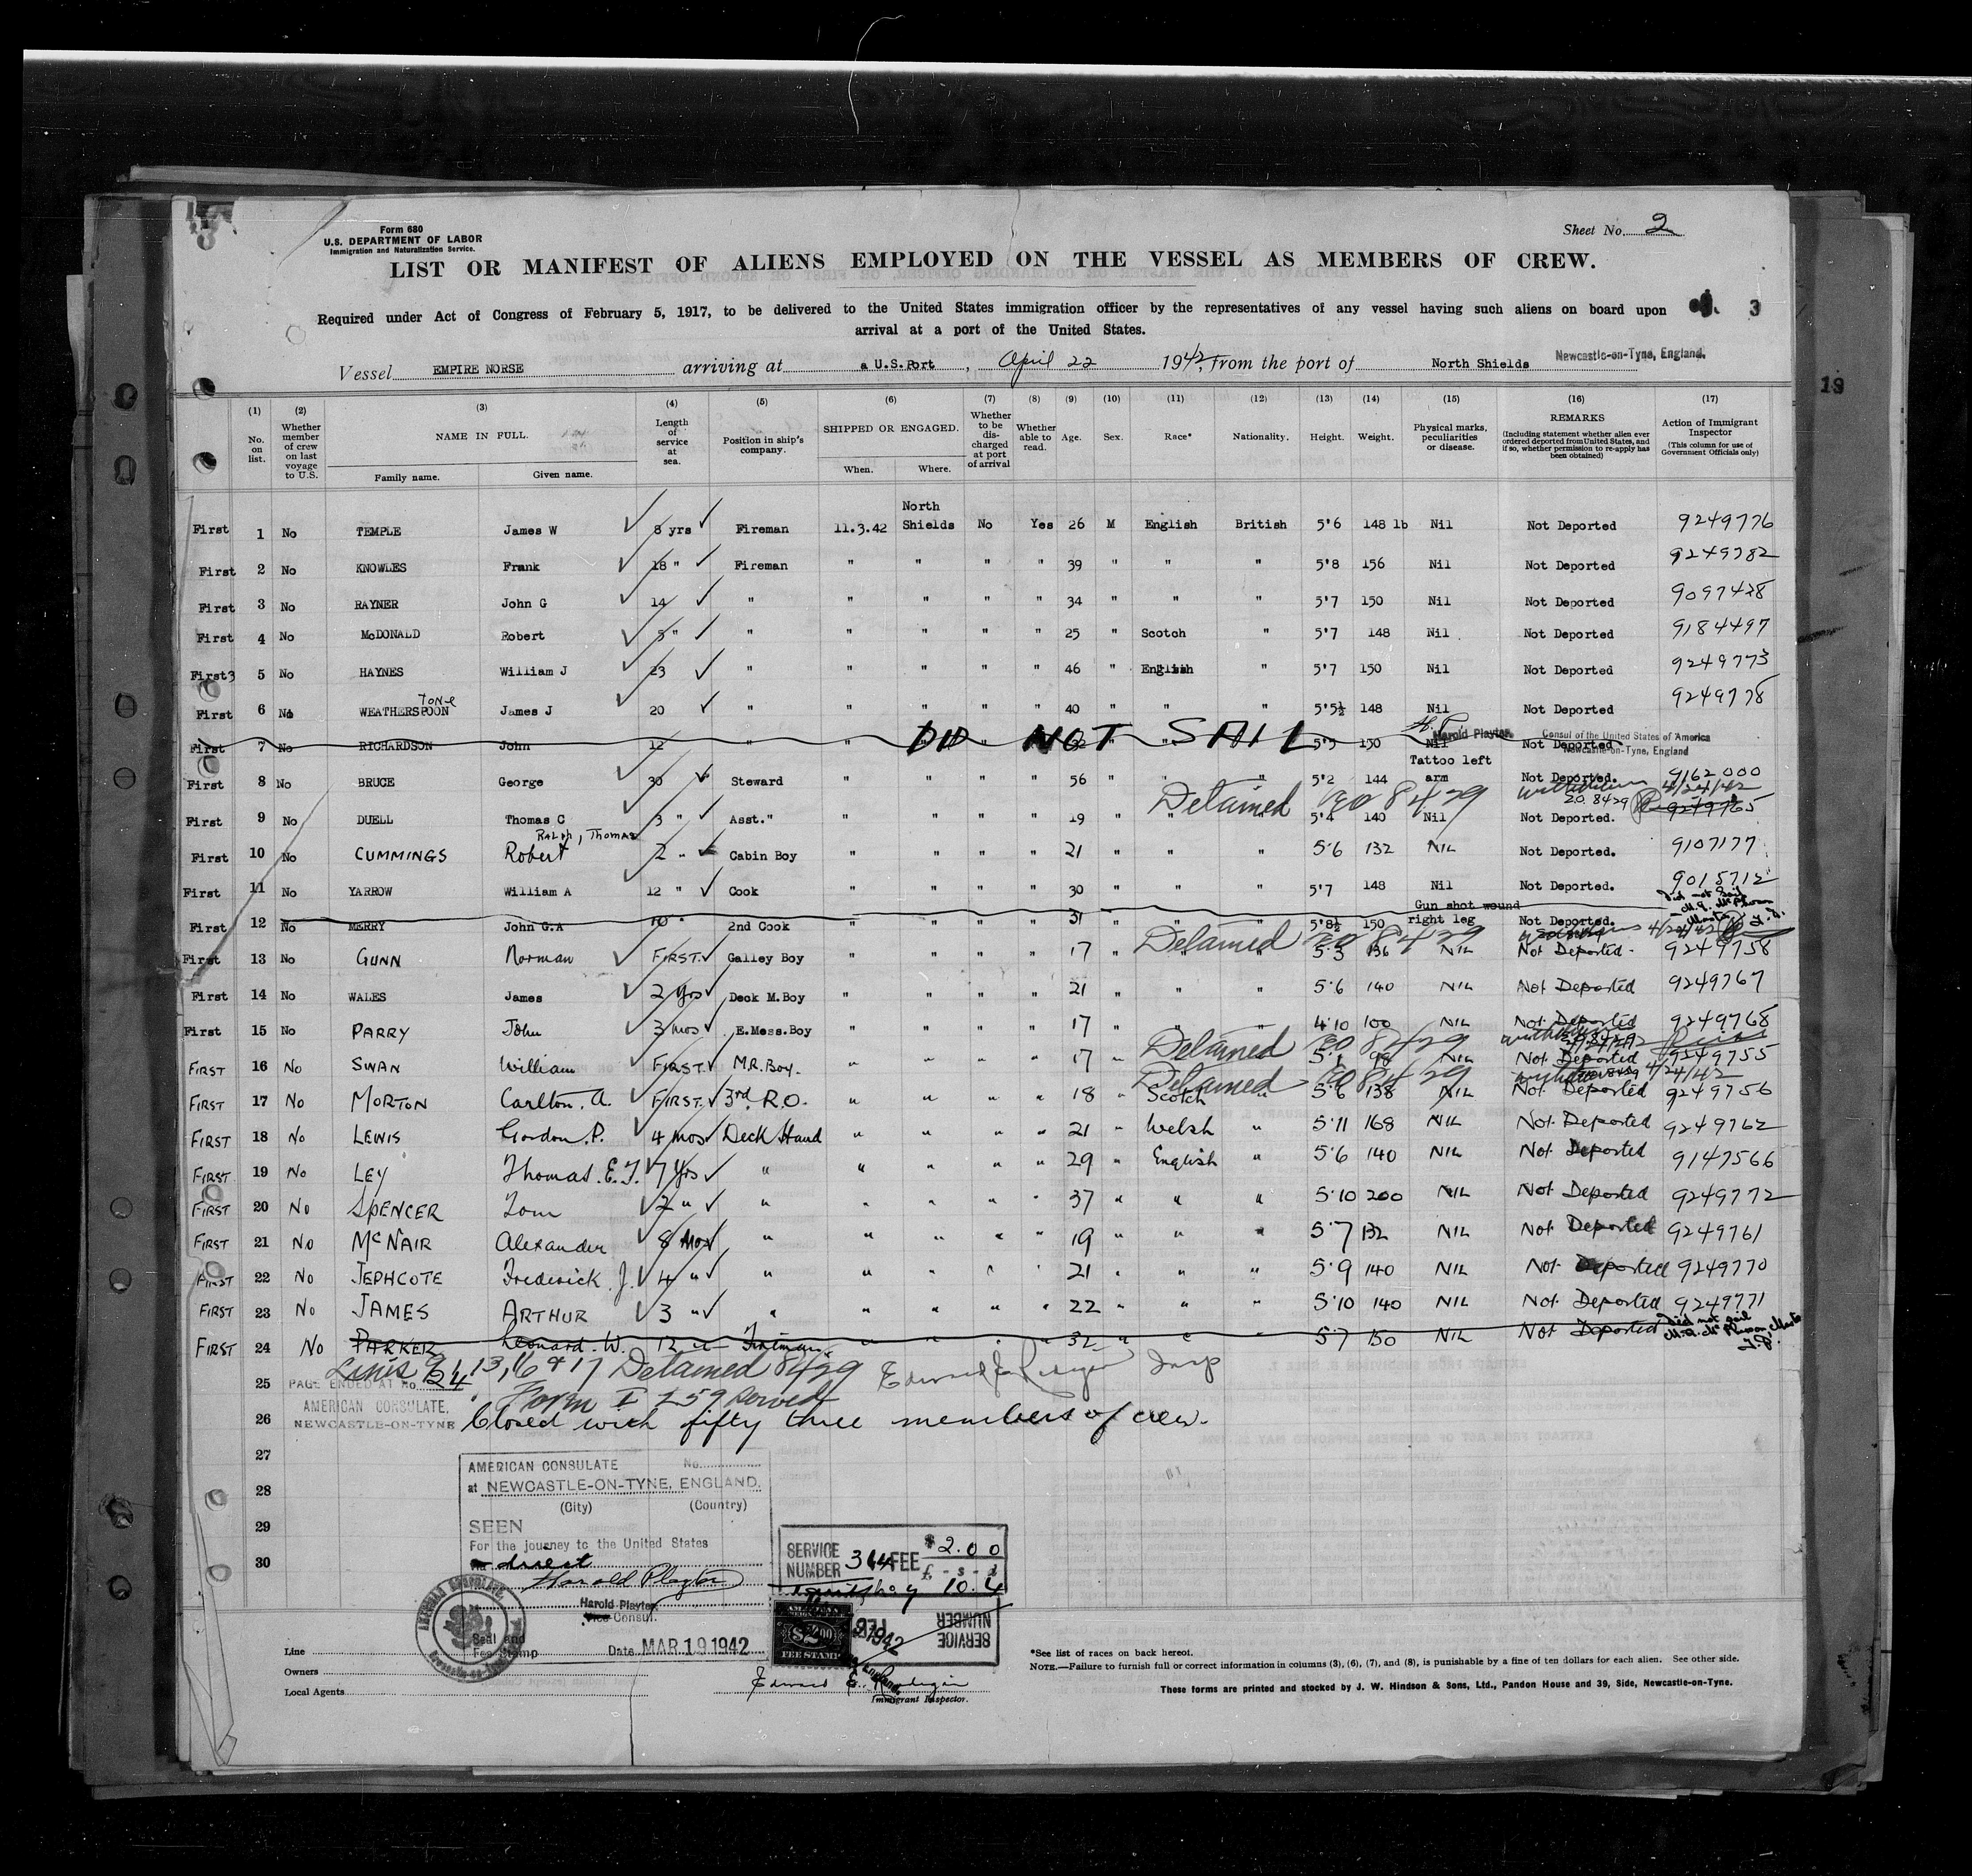 Form 680
U.S. DEPARTMENT OF LABOR
Immigration and Naturalization Service.
Sheet No. 2
LIST OR MANIFEST OF ALIENS EMPLOYED ON THE VESSEL AS MEMBERS OF CREW.
Required under Act of Congress of February 5, 1917, to be delivered to the United States immigration officer by the representatives of any vessel having such aliens on board upon
arrival at a port of the United States.
3
19
Vessel EMPIRE NORSE arriving at a U.S.Port, April 22 1942, from the port of North Shields Newcastle-on-Tyne, England.
(1) No. on list.
(2) Whether member of crew on last voyage to U.S.
(3) NAME IN FULL. Family name. Given name.
(4) Length of service at sea.
(5) Position in ship's company.
(6) SHIPPED OR ENGAGED. When. Where.
(7) Whether to be discharged at port of arrival
(8) Whether able to read.
(9) Age.
(10) Sex.
(11) Race*
(12) Nationality.
(13) Height.
(14) Weight.
(15) Physical marks, peculiarities or disease.
(16) REMARKS (Including statement whether alien ever ordered deported from United States, and if so, whether permission to re-apply has been obtained)
(17) Action of Immigrant Inspector (This column for use of Government Officials only)
First 1 No TEMPLE James W 8 yrs Fireman 11.3.42 North Shields No Yes 26 M English British 5'6 148 lb Nil Not Deported 9249776
First 2 No KNOWLES Frank 18 " Fireman " " " " 39 " " " 5'8 156 Nil Not Deported 9249782
First 3 No RAYNER John G 14 " " " " " 34 " " " 5'7 150 Nil Not Deported 9097428
First 4 No McDONALD Robert 5 " " " " " " 25 " Scotch " 5'7 148 Nil Not Deported 9184497
First3 5 No HAYNES William J 23 " " " " " 46 " English " 5'7 150 Nil Not Deported 9249773
First 6 No WEATHERSPOON Tone James J 20 " " " " " 40 " " " 5'5½ 148 Nil Not Deported 9249778
First 7 No RICHARDSON John 12 " " DID NOT SAIL 5'5 150 Nil Not Deported
Harold Playter. Consul of the United States of America
Newcastle-on-Tyne, England
First 8 No BRUCE George 30 " Steward " " " " 56 " " " 5'2 144 Tattoo left arm Not Deported. 9162000
Detained 20 8429 withdrawn 20.8429 4/24/42
First 9 No DUELL Thomas C 3 " Asst." " " " " 19 " " " 5'4 140 Nil Not Deported. 9249765
Ralph, Thomas
First 10 No CUMMINGS Robert 2 " Cabin Boy " " " " 21 " " " 5'6 132 NIL Not Deported. 9107177
First 11 No YARROW William A 12 " Cook " " " " 30 " " " 5'7 148 Nil Not Deported. 9015712
First 12 No MERRY John G.A 10 " 2nd Cook " " " " 31 " " " 5'8½ 150 Gun shot wound right leg Not Deported. Did not Sail
Master
Detained 20 8429
First 13 No GUNN Norman FIRST. Galley Boy " " " " 17 " " " 5'3 136 NIL Not Deported. 9249758
First 14 No WALES James 2 yrs Deck M.Boy " " " " 21 " " " 5'6 140 NIL Not Deported 9249767
First 15 No PARRY John 3 mos E.Mess.Boy " " " " 17 " " " 4'10 100 NIL Not Deported 9249768
Detained 20 8429
FIRST 16 No SWAN William FIRST. M.R.Boy. " " " " 17 " " " NIL Not Deported 9249755
Detained 20 8429 4/24/42
FIRST 17 No MORTON Carlton. A. FIRST. 3rd R.O. " " " " 18 " Scotch " 5'6 138 NIL Not Deported 9249756
FIRST 18 No LEWIS Gordon. P. 4 mos. Deck Hand " " " " 21 " Welsh " 5'11 168 NIL Not Deported 9249762
FIRST 19 No LEY Thomas. E. J. 7 yrs " " " " " 29 " English " 5'6 140 NIL Not Deported 9147566
FIRST 20 No SPENCER Tom 2 " " " " " " 37 " " " 5'10 200 NIL Not Deported 9249772
FIRST 21 No McNAIR Alexander 8 mos " " " " " 19 " " " 5'7 132 NIL Not Deported 9249761
FIRST 22 No JEPHCOTE Frederick J. 4 " " " " " " 21 " " " 5'9 140 NIL Not Deported 9249770
FIRST 23 No JAMES ARTHUR 3 " " " " " " 22 " " " 5'10 140 NIL Not Deported 9249771
FIRST 24 No PARKER Leonard. W. 12 " Fireman. " " " " 32 " " " 5'7 150 NIL Not Deported Did not sail
Lines 9, 13, 16 & 17 Detained 8429 Insp
25 PAGE ENDED AT No. 24
Form I 259 Served
26 AMERICAN CONSULATE,
NEWCASTLE-ON-TYNE Closed with fifty three members of crew.
27
28
29
30
AMERICAN CONSULATE No.
at NEWCASTLE-ON-TYNE, ENGLAND.
(City) (Country)
SEEN
For the journey to the United States
direct
Harold Playter
Harold Playter
Vice Consul.
Seal and
Fee Stamp
Date MAR.19.1942
SERVICE NUMBER 344 FEE $2.00
£ - s - d
10.4
$2.00
FEE STAMP
SERVICE NUMBER
Line
Owners
Local Agents
Immigrant Inspector.
*See list of races on back hereof.
NOTE.—Failure to furnish full or correct information in columns (3), (6), (7), and (8), is punishable by a fine of ten dollars for each alien. See other side.
These forms are printed and stocked by J. W. Hindson & Sons, Ltd., Pandon House and 39, Side, Newcastle-on-Tyne.